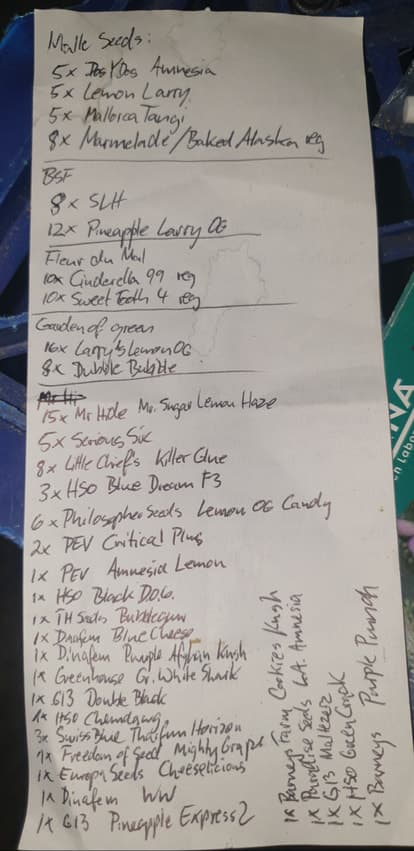 Malle Seeds:
5x Dos Y Dos Amnesia
5x Lemon Larry
5x Mallorca Tangi
8x Marmelade/Baked Alaska reg
BSF
8x SLH
12x Pineapple Larry OG
Fleur du Mal
10x Cinderella 99 reg
10x Sweet Tooth 4 reg
Garden of green
16x Larry's Lemon OG
8x Dubble Bubble
15x Mr Hide Mr. Sugar Lemon Haze
5x Serious Six
8x Little Chief's Killer Glue
3x HSO Blue Dream F3
6x Philosopher Seeds Lemon OG Candy
2x PEV Critical Plus
1x PEV Amnesia Lemon
1x HSO Black D.O.G.
1x TH Seeds Bubblegum
1x Dinafem Blue Cheese
1x Dinafem Purple Afghan Kush
1x Greenhouse Gr. White Shark
1x G13 Double Black
1x HSO Chemdawg
3x Swiss Blue Horizon
1x Freedom of Seed Mighty Grape
1x Europa Seeds Cheeselicious
1x Dinafem WW
1x G13 Pineapple Express 2
1x Barneys Farm Cookies Kush
1x Paradise Seeds L.A. Amnesia
1x G13
1x HSO Green Crack
1x Barneys Purple Punch
NA
on Lab